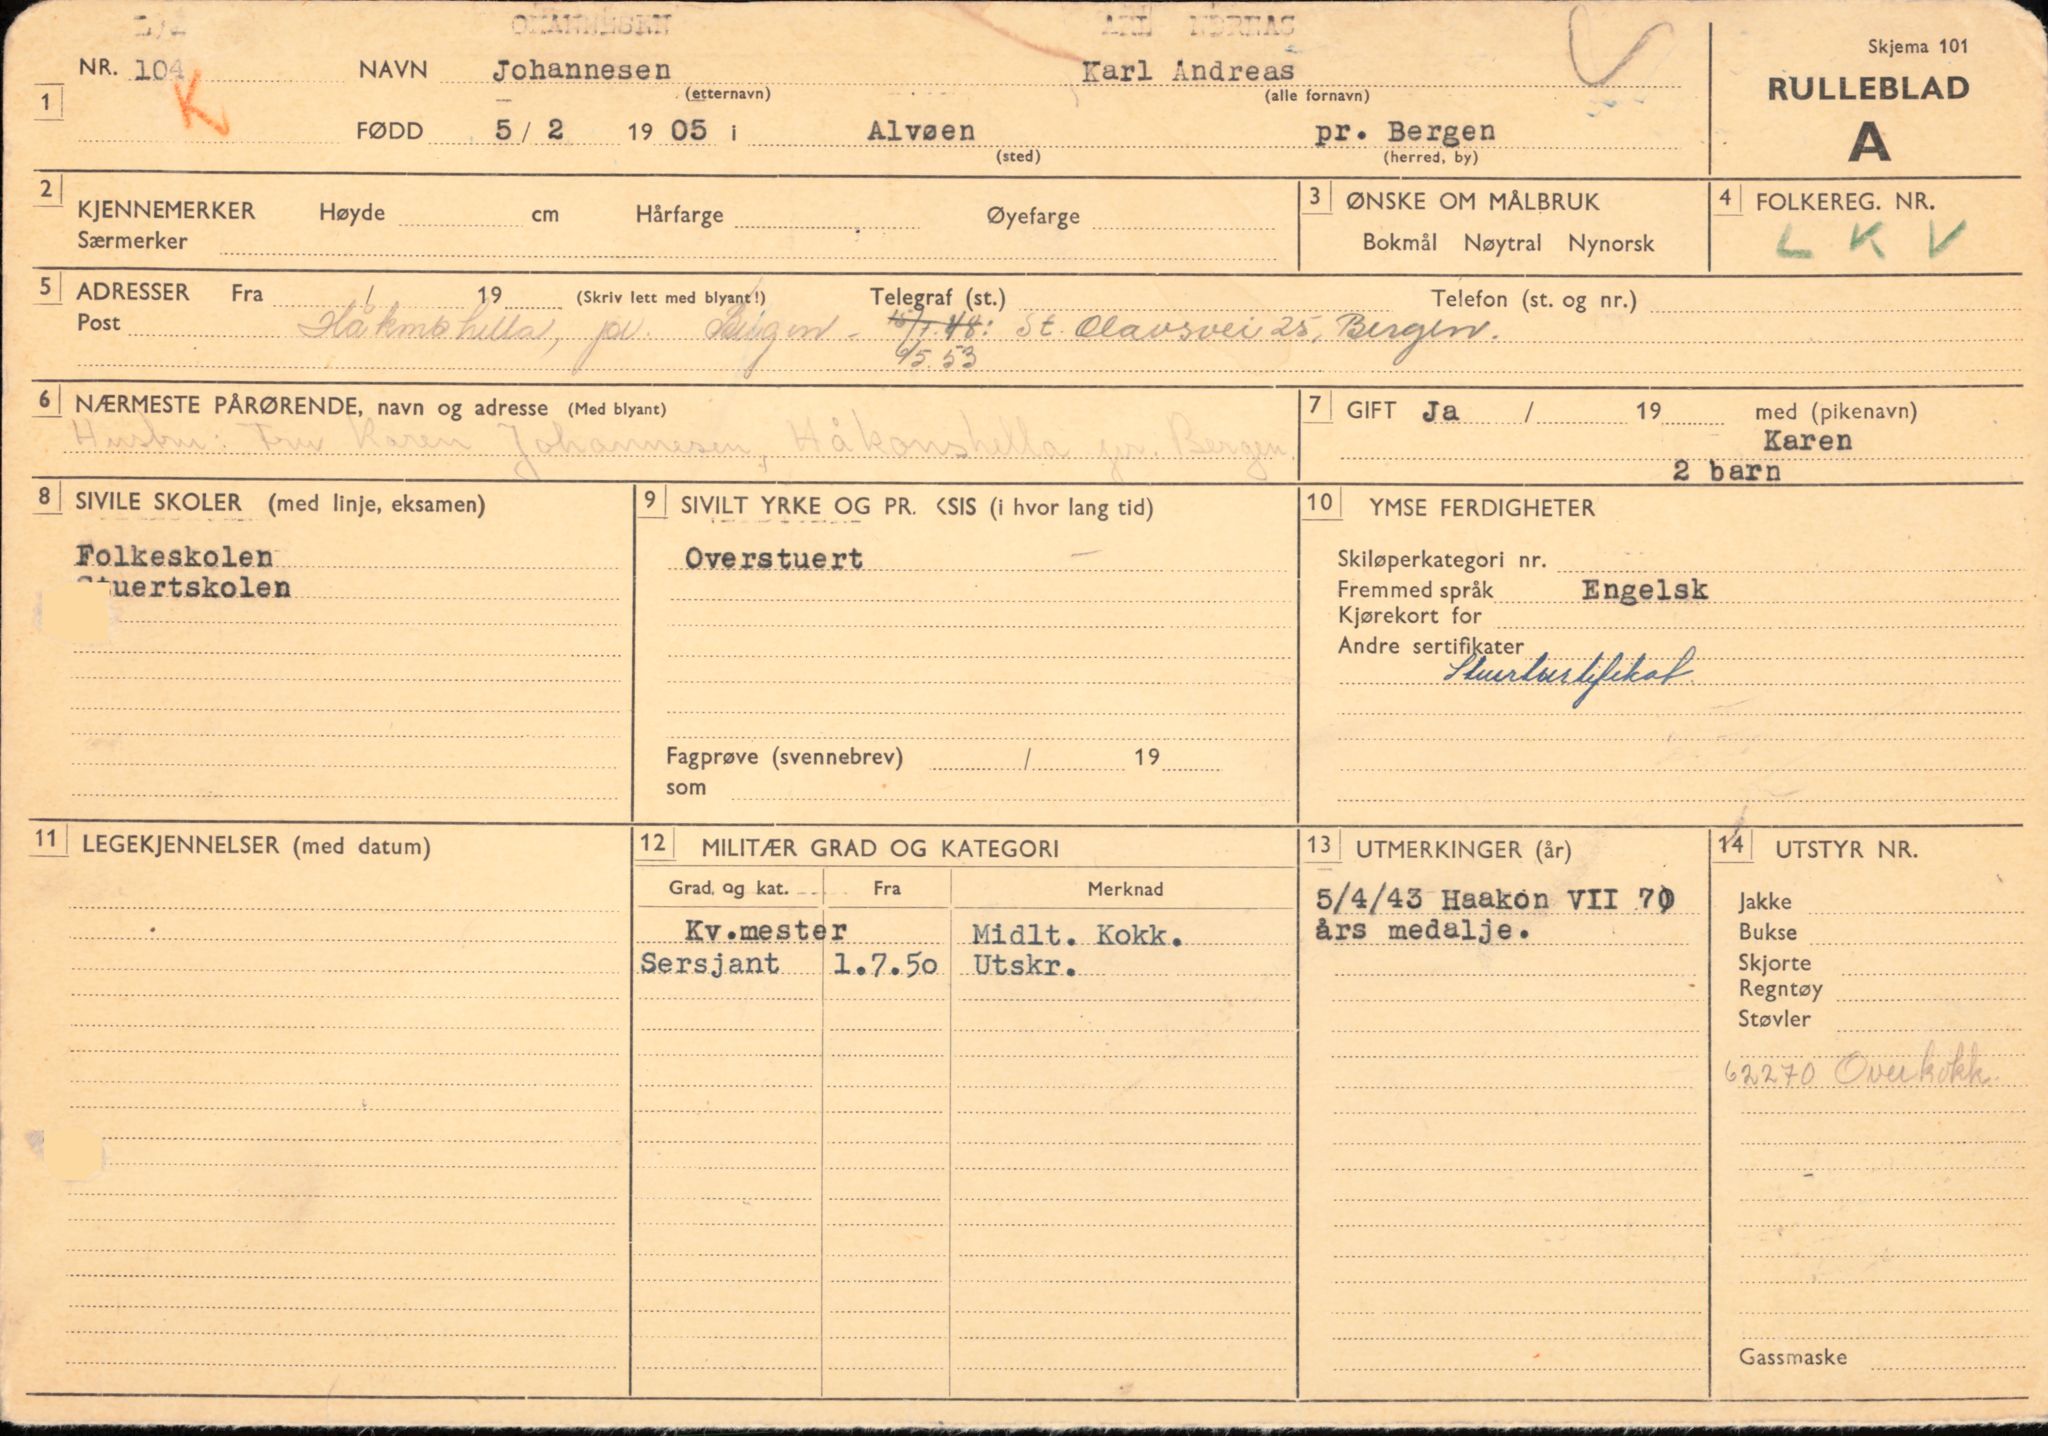 Skjema 101
RULLEBLAD
A
1 NR. 104 NAVN Johannesen Karl Andreas
(etternavn) (alle fornavn)
K
FØDD 5 / 2 19 05 i Alvøen pr. Bergen
(sted) (herred, by)
2 KJENNEMERKER Høyde cm Hårfarge Øyefarge
Særmerker
3 ØNSKE OM MÅLBRUK
Bokmål Nøytral Nynorsk
4 FOLKEREG. NR.
L K V
5 ADRESSER Fra / 19 (Skriv lett med blyant!) Telegraf (st.) Telefon (st. og nr.)
Post Håkonshella, pr. Bergen - 15/1.48: St. Olavsvei 25, Bergen.
6/5.53
6 NÆRMESTE PÅRØRENDE, navn og adresse (Med blyant)
Hustru: Fru Karen Johannesen, Håkonshella pr. Bergen.
7 GIFT Ja / 19 med (pikenavn)
Karen
2 barn
8 SIVILE SKOLER (med linje, eksamen)
Folkeskolen
Stuertskolen
9 SIVILT YRKE OG PR. KSIS (i hvor lang tid)
Overstuert
Fagprøve (svennebrev) / 19
som
10 YMSE FERDIGHETER
Skiløperkategori nr.
Fremmed språk Engelsk
Kjørekort for
Andre sertifikater
Stuertsertifikat
11 LEGEKJENNELSER (med datum)
12 MILITÆR GRAD OG KATEGORI
Grad og kat. Fra Merknad
Kv.mester Midlt. Kokk.
Sersjant 1.7.50 Utskr.
13 UTMERKINGER (år)
5/4/43 Haakon VII 70
års medalje.
14 UTSTYR NR.
Jakke
Bukse
Skjorte
Regntøy
Støvler
62270 Overkokk.
Gassmaske